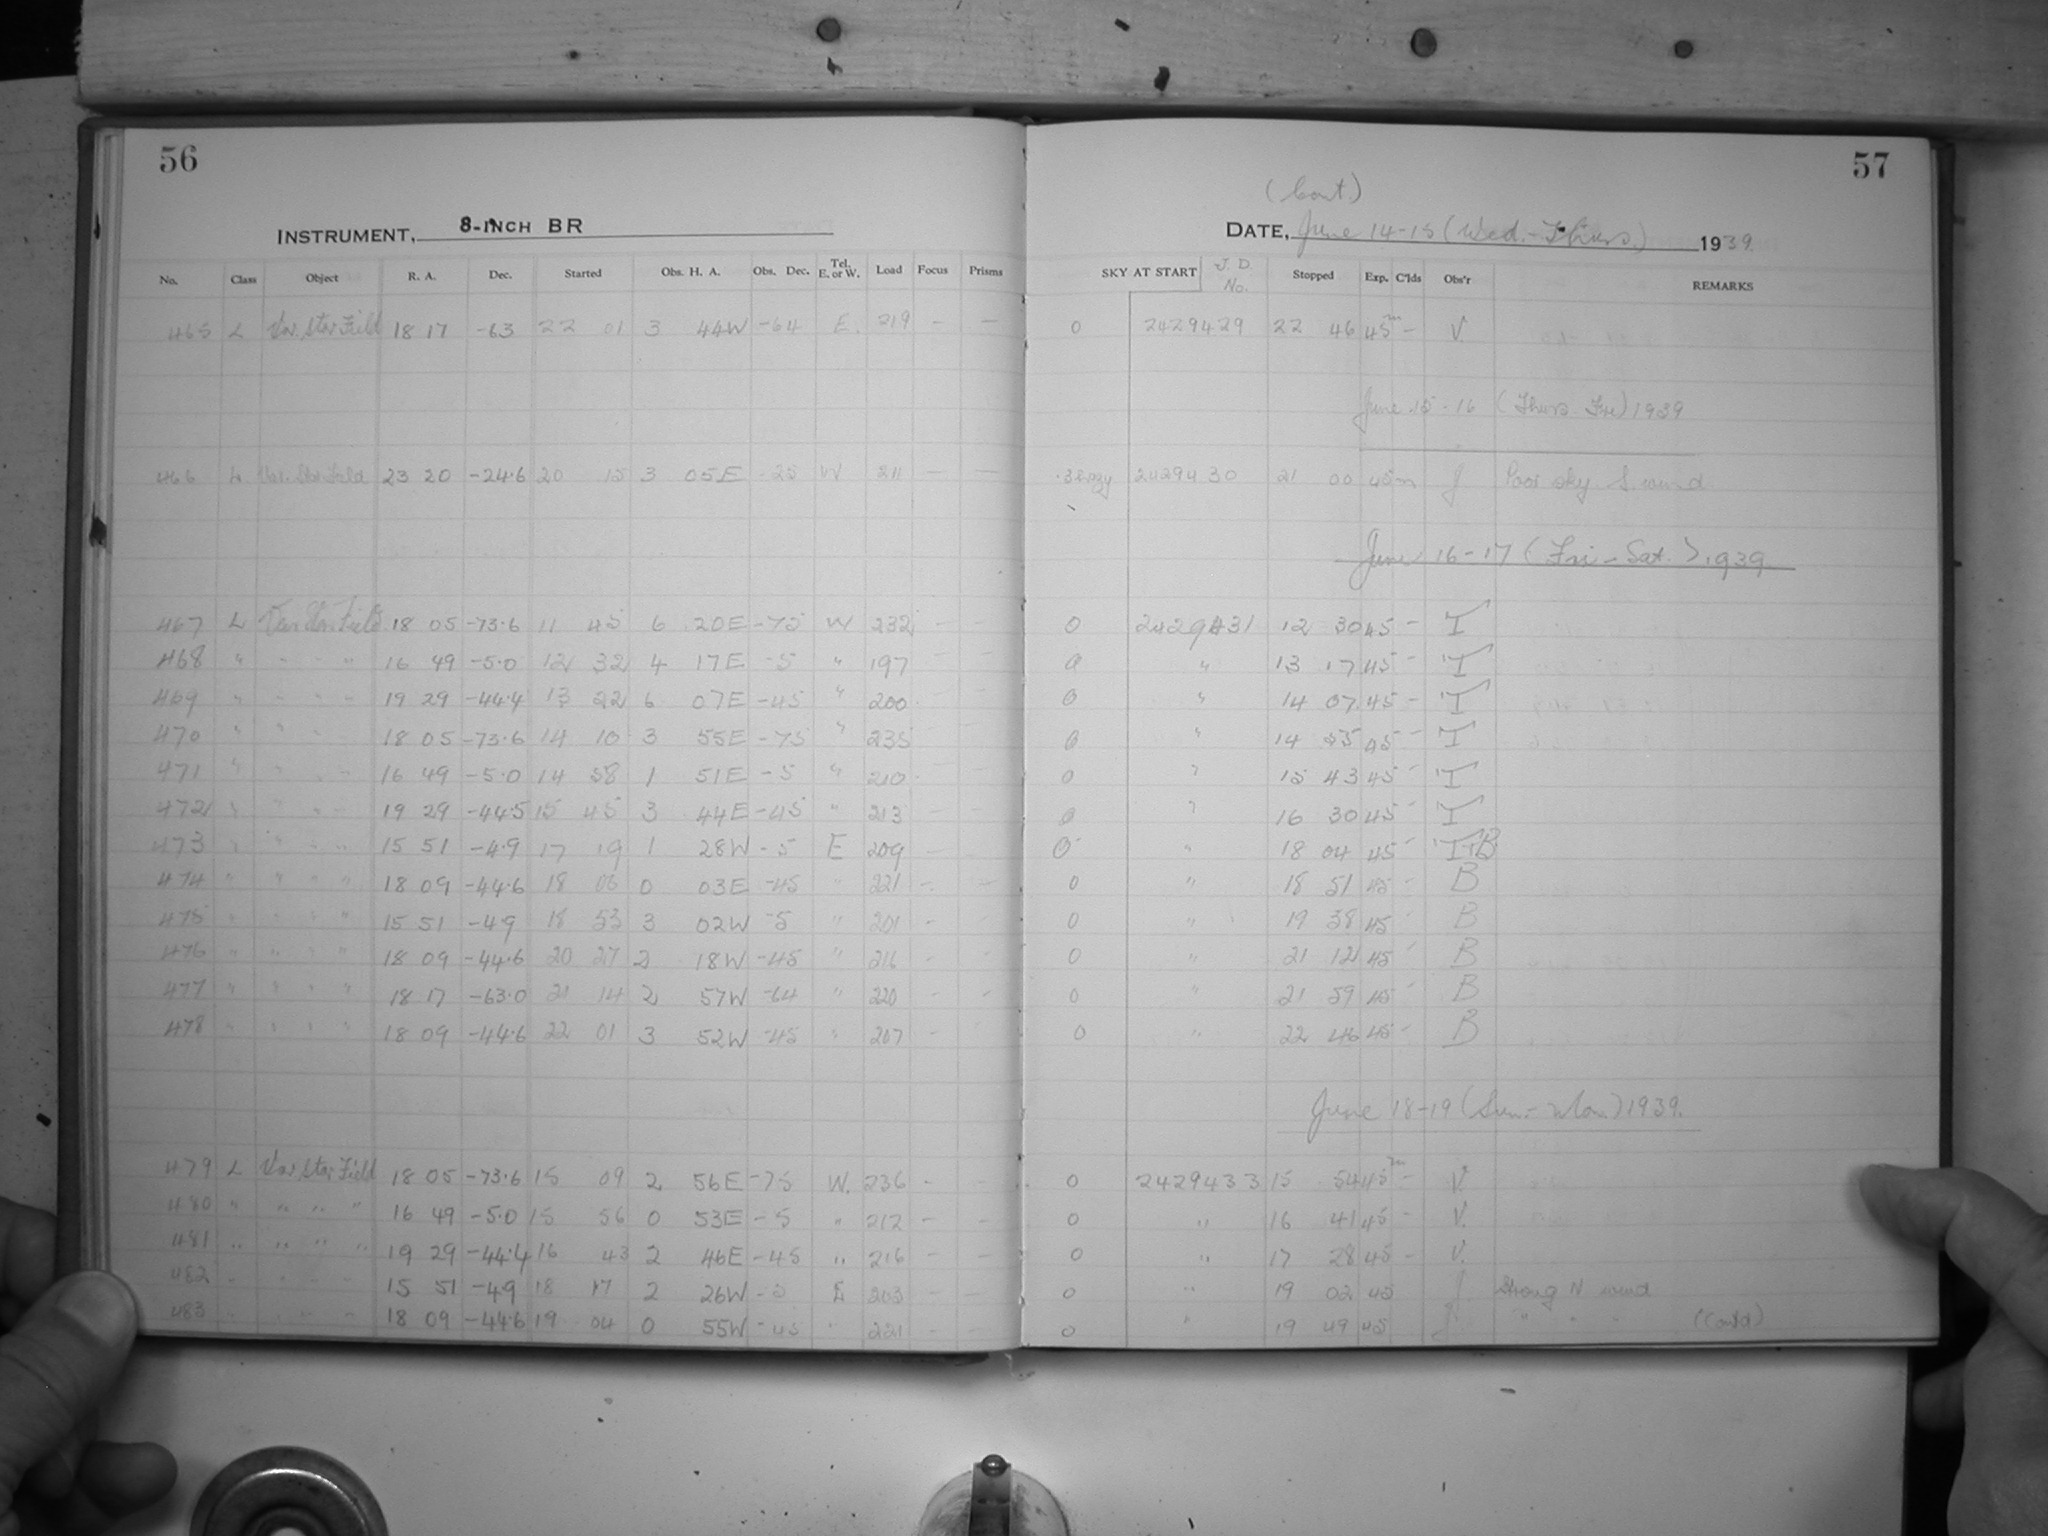 56
57
(Cont.)
INSTRUMENT, 8-INCH BR
DATE, June 14-15 (Wed.-Thurs.) 1939.
No. Class Object R. A. Dec. Started Obs. H. A. Obs. Dec. Tel. E. or W. Load Focus Prisms SKY AT START J. D. No. Stopped Exp. C'lds Obs'r REMARKS
465 L Var. Star Field 18 17 -63 22 01 3 44W -64 E. 219 - - 0 2429429 22 46 45m - V
June 15-16 (Thurs Fri) 1939
466 L Var. Star Field 23 20 -24.6 20 15 3 05E -25 W 211 - - 2429430 21 00 45m J Poor sky S wind
June 16-17 (Fri-Sat.) 1939
467 L Var Star Field 18 05 -73.6 11 45 6 20E -75 W 232 - - 0 2429431 12 30 45 - T
468 " " " " 16 49 -5.0 12 32 4 17E -5 " 197 - - 0 " 13 17 45 - T
469 " " " " 19 29 -44.4 13 22 6 07E -45 " 200 - - 0 " 14 07 45 - T
470 " " " " 18 05 -73.6 14 10 3 55E -75 " 235 - - 0 " 14 55 45 - T
471 " " " " 16 49 -5.0 14 58 1 51E -5 " 210 - - 0 " 15 43 45 - T
472 " " " " 19 29 -44.5 15 45 3 44E -45 " 213 - - 0 " 16 30 45 - T
473 " " " " 15 51 -4.9 17 19 1 28W -5 E 209 - - 0 " 18 04 45 - T+B
474 " " " " 18 09 -44.6 18 06 0 03E -45 " 221 - - 0 " 18 51 45 - B
475 " " " " 15 51 -4.9 18 53 3 02W -5 " 201 - - 0 " 19 38 45 - B
476 " " " " 18 09 -44.6 20 27 2 18W -45 " 216 - - 0 " 21 12 45 - B
477 " " " " 18 17 -63.0 21 14 2 57W -64 " 220 - - 0 " 21 59 45 - B
478 " " " " 18 09 -44.6 22 01 3 52W -45 " 207 - - 0 " 22 46 45 - B
June 18-19 (Sun-Mon) 1939.
479 L Var. Star Field 18 05 -73.6 15 09 2 56E -75 W. 236 - - 0 2429433 15 54 45m - V.
480 " " " " 16 49 -5.0 15 56 0 53E -5 " 212 - - 0 " 16 41 45 - V.
481 " " " " 19 29 -44.4 16 43 2 46E -45 " 216 - - 0 " 17 28 45 - V.
482 " " " " 15 51 -4.9 18 17 2 26W -5 E 203 - - 0 " 19 02 45 J Strong N wind
483 " " " " 18 09 -44.6 19 04 0 55W -45 " 221 - - 0 " 19 49 45 J " " " (Contd)